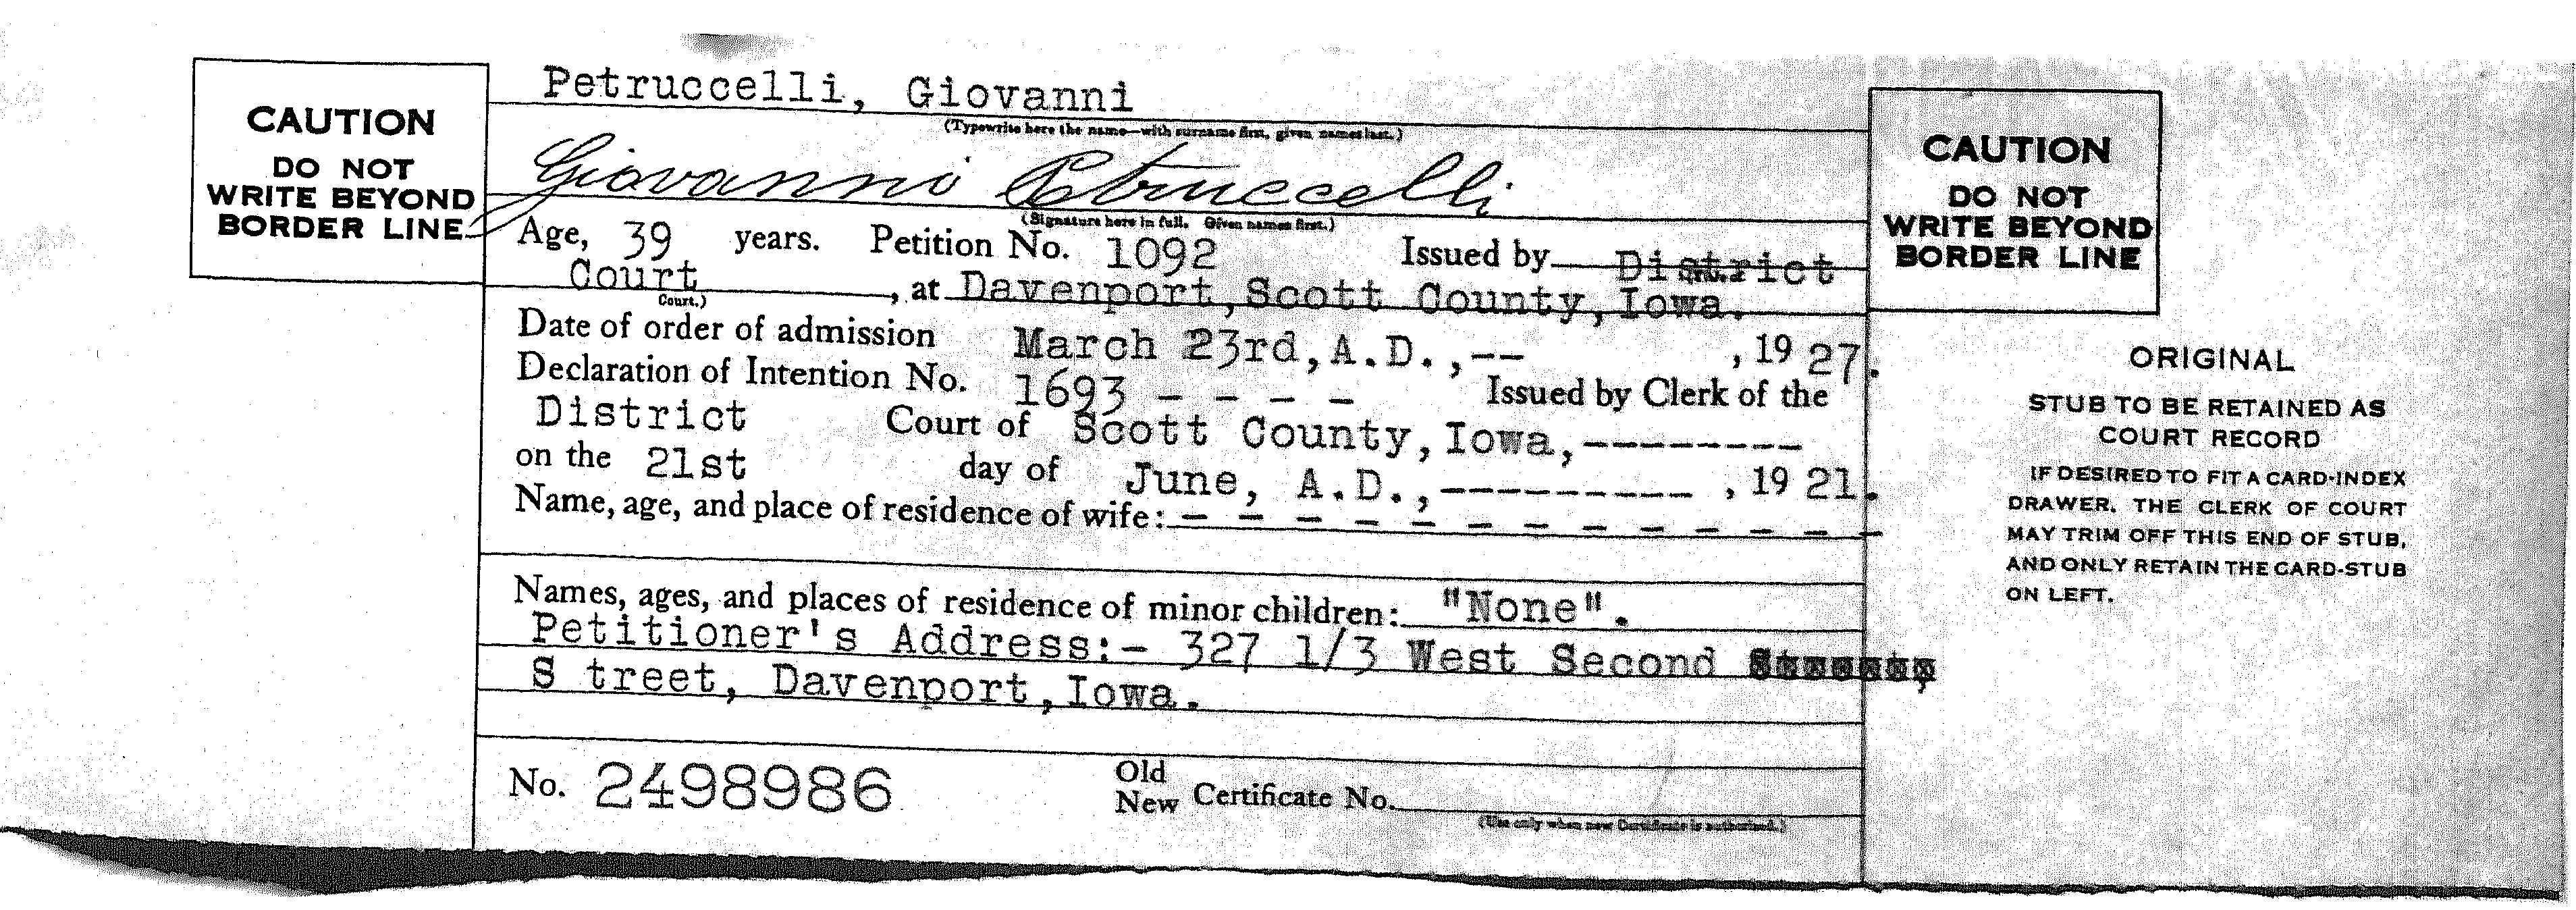 CAUTION
DO NOT
WRITE BEYOND
BORDER LINE
Petruccelli, Giovanni
(Typewrite here the name—with surname first, given names last.)
Giovanni Petruccelli
(Signature here in full. Given names first.)
Age, 39 years. Petition No. 1092 Issued by District
Court , at Davenport, Scott County, Iowa.
Court.)
Date of order of admission March 23rd, A.D.,-- , 19 27.
Declaration of Intention No. 1693 - - - - Issued by Clerk of the
District Court of Scott County, Iowa,--------
on the 21st day of June, A.D.,---------- , 19 21.
Name, age, and place of residence of wife: - - - - - - - - - - - - -
Names, ages, and places of residence of minor children: "None".
Petitioner's Address:- 327 1/3 West Second
S treet, Davenport, Iowa.
No. 2498986
Old
New Certificate No.
(Use only when new Certificate is authorized.)
CAUTION
DO NOT
WRITE BEYOND
BORDER LINE
ORIGINAL
STUB TO BE RETAINED AS
COURT RECORD
IF DESIRED TO FIT A CARD-INDEX
DRAWER, THE CLERK OF COURT
MAY TRIM OFF THIS END OF STUB,
AND ONLY RETAIN THE CARD-STUB
ON LEFT.